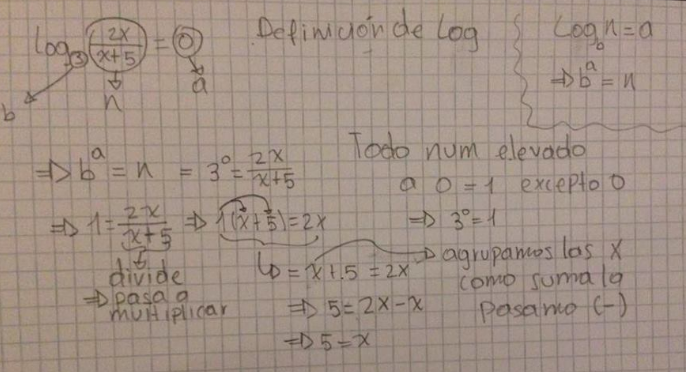 log₃ (2x/x+5) = 0 Definición de log
b n a
Log_b n = a
⇒ b^a = n
⇒ b^a = n = 3⁰ = 2x/x+5
Todo num elevado
a 0 = 1 excepto 0
⇒ 3⁰ = 1
⇒ 1 = 2x/x+5 ⇒ 1(x+5) = 2x
divide
⇒ pasa a
multiplicar
= x+5 = 2x
⇒ 5 = 2x-x
⇒ 5 = x
agrupamos las x
como suma la
pasamo (-)